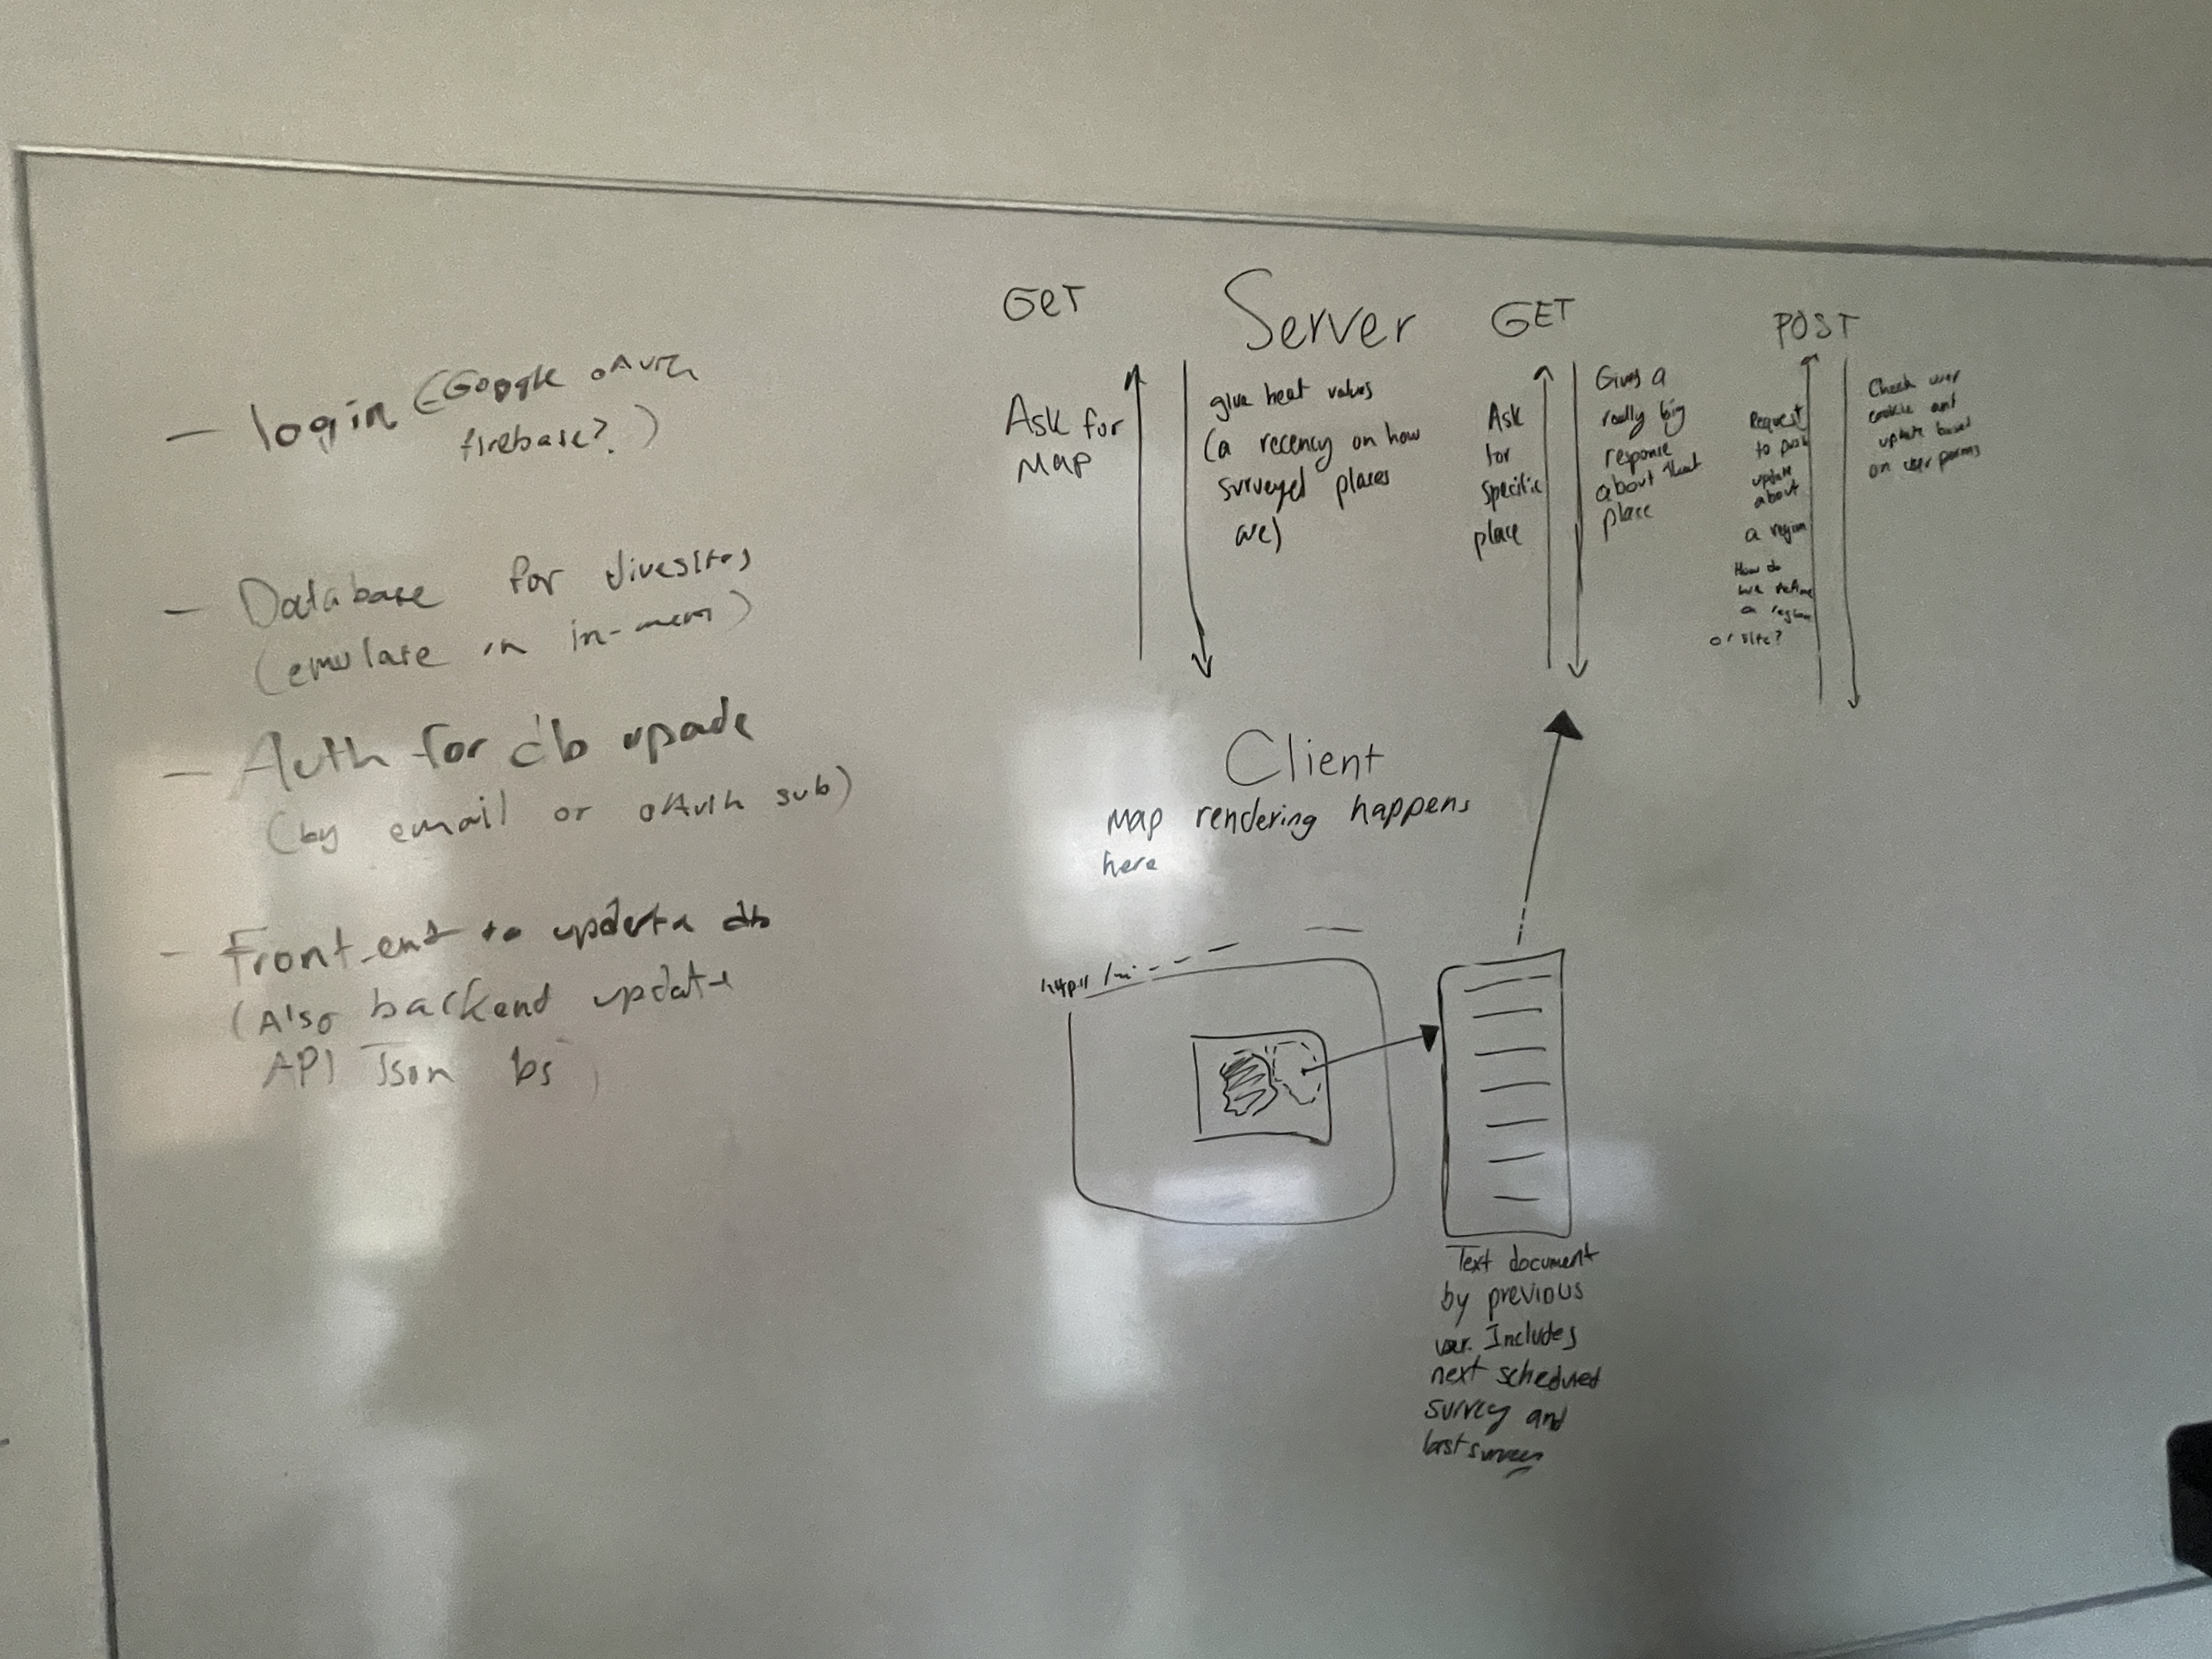 - login (Google oAuth
firebase?)
- Database for divesites
(emulate in in-mem)
- Auth for db upade
(by email or oAuth sub)
- Front-end to update db
(Also backend update
API Json bs)
GET
Server
GET
POST
Ask for
Map
give heat values
(a recency on how
surveyed places
are)
Ask
for
specific
place
Gives a
really big
response
about that
place
Request
to push
update
about
a region
How do
we define
a region
or site?
Check user
cookie and
update based
on user perms
Client
Map rendering happens
here
Text document
by previous
Includes
next scheduled
survey and
last survey